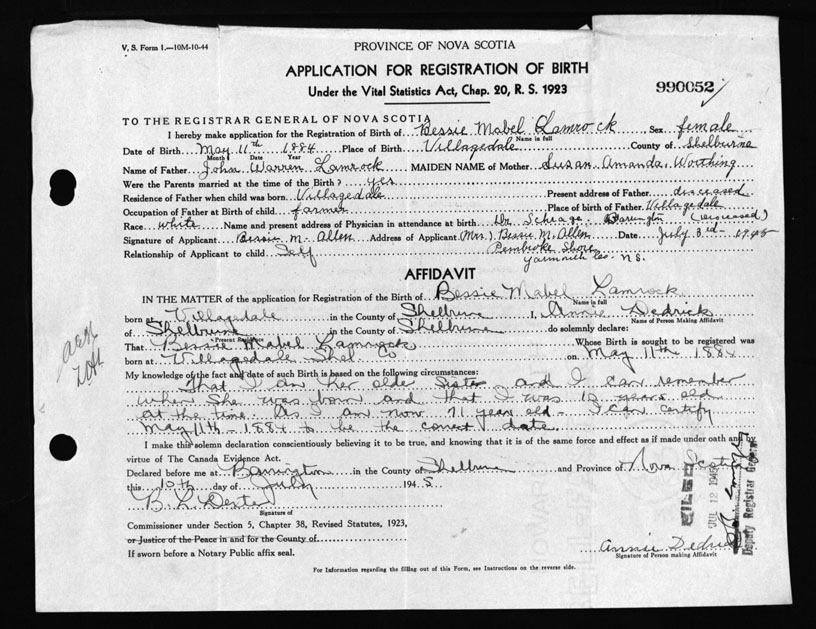 V. S. Form 1.—10M-10-44
PROVINCE OF NOVA SCOTIA
APPLICATION FOR REGISTRATION OF BIRTH
Under the Vital Statistics Act, Chap. 20, R. S. 1923
990052
TO THE REGISTRAR GENERAL OF NOVA SCOTIA
I hereby make application for the Registration of Birth of Bessie Mabel Lamrock Sex female
Name in full
Date of Birth May 11th 1884 Place of Birth Villagedale County of Shelburne
Month Date Year
Name of Father John Warren Lamrock MAIDEN NAME of Mother Susan Amanda Worthing
Were the Parents married at the time of the Birth? yes
Residence of Father when child was born Villagedale Present address of Father disceased
Occupation of Father at Birth of child farmer Place of birth of Father Villagedale
Race white Name and present address of Physician in attendance at birth Dr. Barrington (Desceased)
Signature of Applicant Bessie M. Allen Address of Applicant (Mrs.) Bessie M. Allen Date July 3rd - 1945
Relationship of Applicant to child Self Pembroke Shore
Yarmouth Co. N.S.
AFFIDAVIT
IN THE MATTER of the application for Registration of the Birth of Bessie Mabel Lamrock
Name in full
born at Villagedale in the County of Shelburne I, Annie Dedrick
Name of Person Making Affidavit
of Shelburne in the County of Shelburne do solemnly declare:
Present Residence
That Bessie Mabel Lamrock Whose Birth is sought to be registered was
born at Villagedale Shel Co on May 11th 1884
My knowledge of the fact and date of such Birth is based on the following circumstances:
That I am her olde Sister and I can remember
when She was born and that I was 10 years old
at the time. As I am now 71 year old - I can certify
May 11th - 1884 to be the correct date
I make this solemn declaration conscientiously believing it to be true, and knowing that it is of the same force and effect as if made under oath and by
virtue of The Canada Evidence Act.
Declared before me at Barrington in the County of Shelburne and Province of Nova Scotia
this 10th day of July 1945
Signature of
Commissioner under Section 5, Chapter 38, Revised Statutes, 1923,
or Justice of the Peace in and for the County of
If sworn before a Notary Public affix seal.
FILED JUL 12 1945
Deputy Registrar General
Annie Dedrick
Signature of Person making Affidavit
For Information regarding the filling out of this Form, see Instructions on the reverse side.